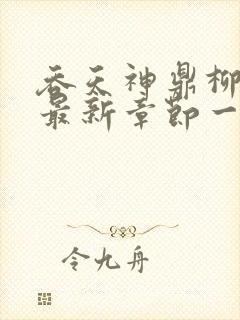 吞天神鼎柳
最新章节一
令九舟